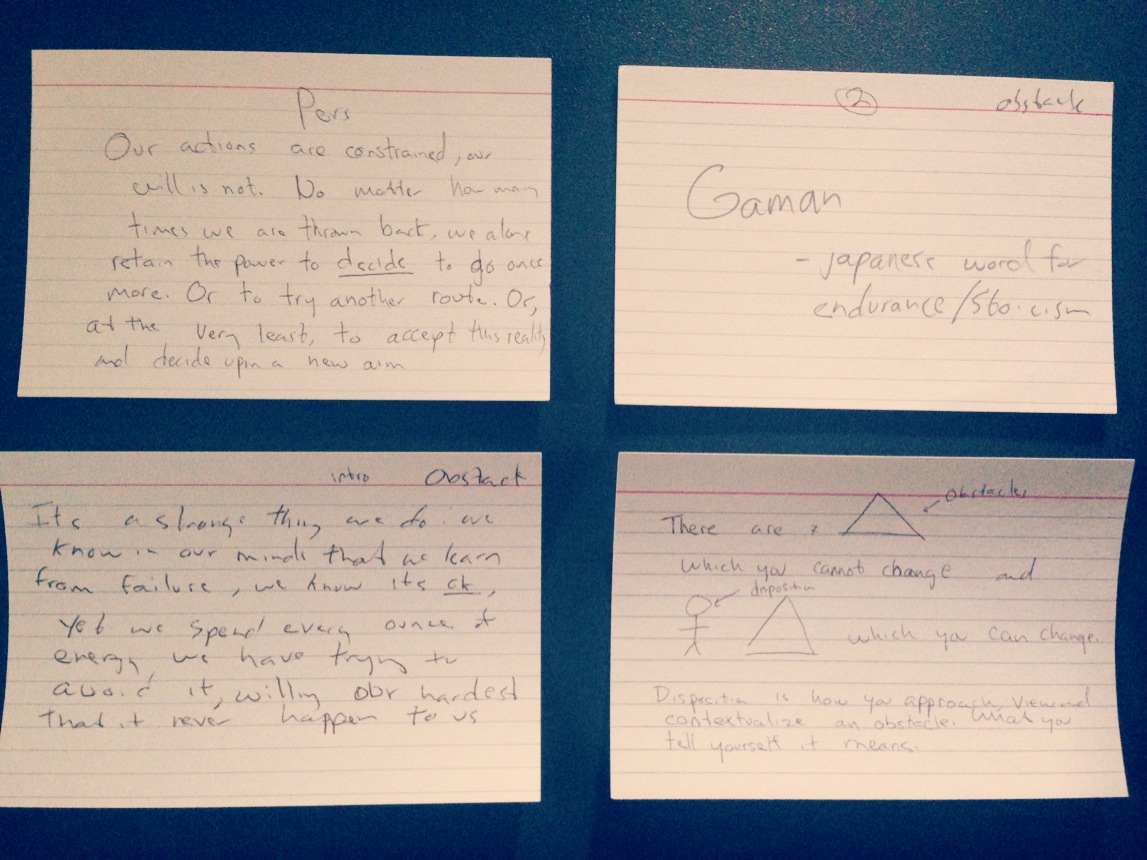 Pers
Our actions are constrained, our
will is not. No matter how many
times we are thrown back, we alone
retain the power to decide to go once
more. Or to try another route. Or,
at the very least, to accept this reality
and decide upon a new aim
② obstacle
Gaman
- japanese word for
endurance/Stoicism
intro Obstacle
Its a strange thing we do. we
know in our minds that we learn
from failure, we know its ok,
Yet we spend every ounce of
energy we have trying to
avoid it, willing our hardest
that it never happen to us
obstacles
There are
which you cannot change and
disposition
which you can change.
Disposition is how you approach, view and
contextualize an obstacle. What you
tell yourself it means.